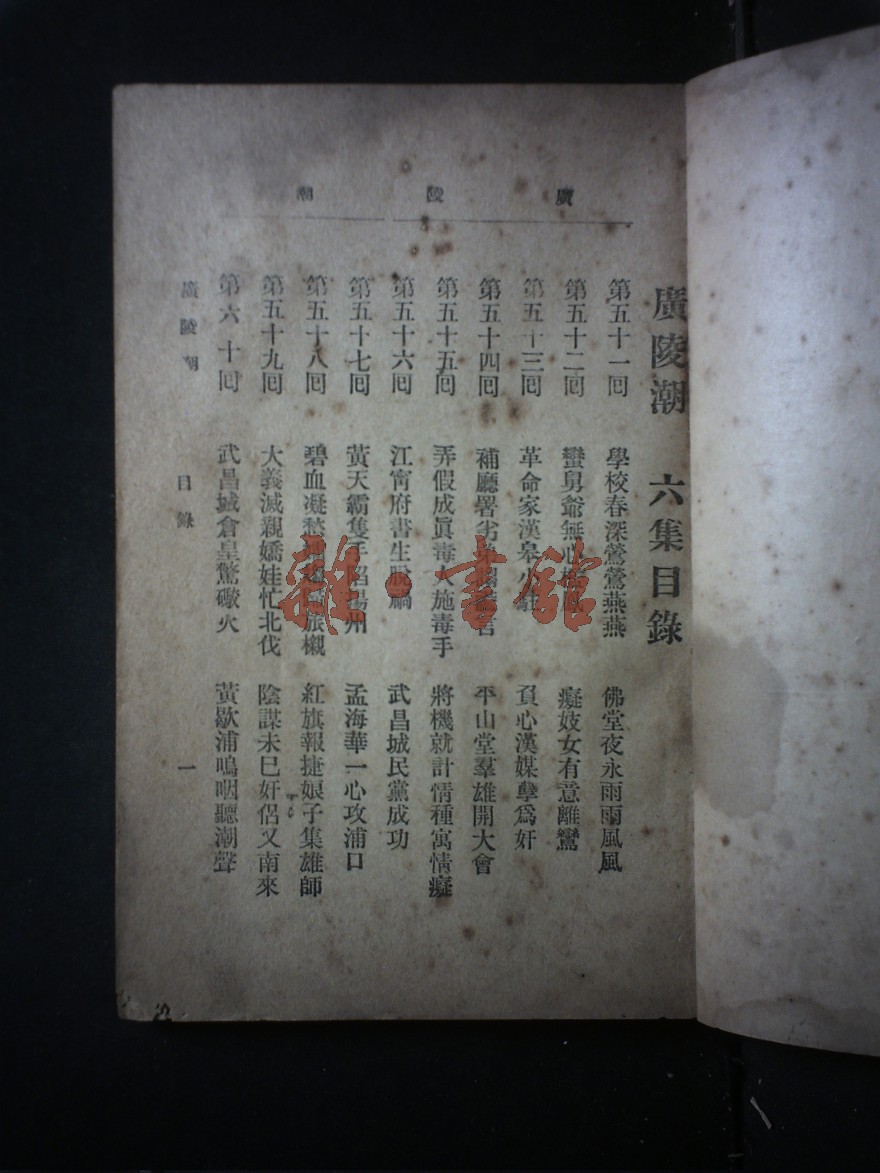 廣陵潮
廣陵潮 六集目錄
第五十一回 學校春深鶯鶯燕燕 佛堂夜永雨雨風風
第五十二回 蠻舅爺無心 癡妓女有意離鸞
第五十三回 革命家漢皋小駐 負心漢媒孽爲奸
第五十四回 補廳署劣弟 言 平山堂羣雄開大會
第五十五回 弄假成眞毒人施毒手 將機就計情種寓情癡
第五十六回 江甯府書生脫禍 武昌城民黨成功
第五十七回 黃天霸隻手 揚州 孟海華一心攻浦口
第五十八回 碧血凝愁 旅櫬 紅旗報捷娘子集雄師
第五十九回 大義滅親嬌娃忙北伐 陰謀未已奸侶又南來
第六十回 武昌城倉皇驚礮火 黃歇浦嗚咽聽潮聲
廣陵潮 目錄 一
雜·書館